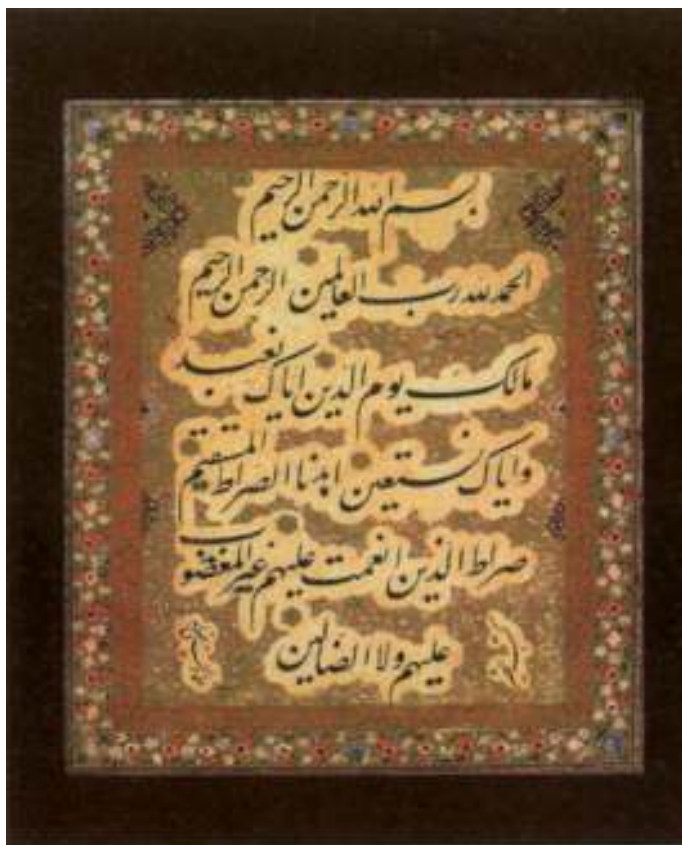 بسم الله الرحمن الرحيم
الحمد لله رب العالمين الرحمن الرحيم
مالك يوم الدين اياك نعبد
و اياك نستعين اهدنا الصراط المستقيم
صراط الذين انعمت عليهم غير المغضوب
عليهم ولا الضالين